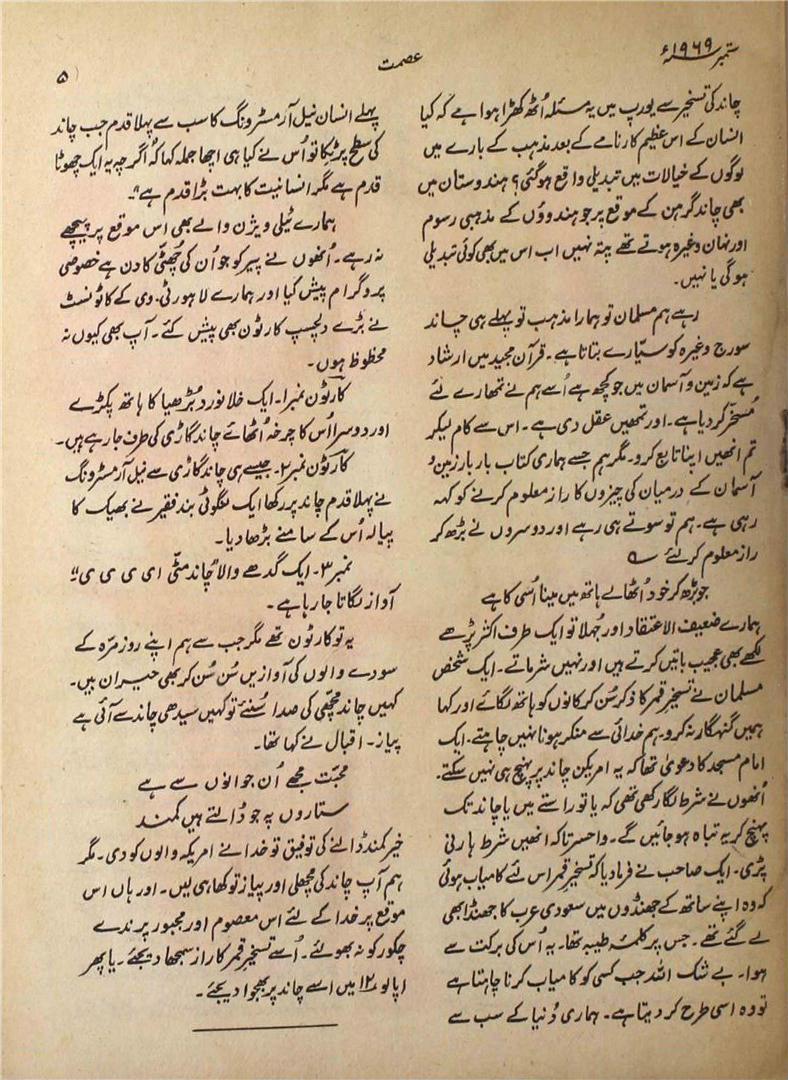 ستمبر ۱۹۶۹ء
عصمت
۵
چاند کی تسخیر سے یورپ میں یہ مسئلہ اُٹھ کھڑا ہوا ہے کہ کیا
انسان کے اس عظیم کارنامے کے بعد مذہب کے بارے میں
لوگوں کے خیالات میں تبدیلی واقع ہوگئی؟ ہندوستان میں
بھی چاند گرہن کے موقع پر جو ہندوؤں کے مذہبی رسوم
اور نہان وغیرہ ہوتے تھے پتہ نہیں اب اس میں بھی کوئی تبدیلی
ہوگی یا نہیں۔
رہے ہم مسلمان تو ہمارا مذہب تو پہلے ہی چاند
سورج وغیرہ کو سیّارے بتاتا ہے۔ قرآن مجید میں ارشاد
ہے کہ زمین و آسمان میں جو کچھ ہے اُسے ہم نے تمھارے لئے
مُسخّر کردیا ہے۔ اور تمھیں عقل دی ہے۔ اس سے کام لیکر
تم انھیں اپنا تابع کرو۔ مگر ہم جسے ہماری کتاب بار بار زمین و
آسمان کے درمیان کی چیزوں کا راز معلوم کرنے کو کہہ
رہی ہے۔ ہم تو سوتے ہی رہے اور دوسروں نے بڑھ کر
راز معلوم کر لئے ؎
جو بڑھ کر خود اُٹھالے ہاتھ میں مینا اُسی کا ہے
ہمارے ضعیف الاعتقاد اور جُہلا تو ایک طرف اکثر پڑھے
لکھے بھی عجیب باتیں کرتے ہیں اور نہیں شرماتے۔ ایک شخص
مسلمان نے تسخیر قمر کا ذکر سُن کر کانوں کو ہاتھ لگائے اور کہا
ہمیں گنہگار نہ کرو۔ ہم خدائی سے منکر ہونا نہیں چاہتے۔ ایک
امام مسجد کا دعویٰ تھا کہ یہ امریکن چاند پر پہنچ ہی نہیں سکتے۔
اُنھوں نے شرط لگا رکھی تھی کہ یا تو راستے میں یا چاند تک
پہنچ کر یہ تباہ ہو جائیں گے۔ واحسرتا کہ انھیں شرط ہارنی
پڑی۔ ایک صاحب نے فرمایا کہ تسخیر قمر اس لئے کامیاب ہوئی
کہ وہ اپنے ساتھ کے جھنڈوں میں سعودی عرب کا جھنڈا بھی
لے گئے تھے۔ جس پر کلمۂ طیبہ تھا۔ یہ اُس کی برکت سے
ہوا۔ بے شک اللہ جب کسی کو کامیاب کرنا چاہتا ہے
تو وہ اسی طرح کر دیتا ہے۔ ہماری دُنیا کے سب سے
پہلے انسان نیل آرمسٹرونگ کا سب سے پہلا قدم جب چاند
کی سطح پر ٹِکا تو اُس نے کیا ہی اچھا جملہ کہا کہ "اگرچہ یہ ایک چھوٹا
قدم ہے مگر انسانیت کا بہت بڑا قدم ہے"۔
ہمارے ٹیلی ویژن والے بھی اس موقع پر پیچھے
نہ رہے۔ اُنھوں نے پیر کو جو اُن کی چھٹی کا دن ہے خصوصی
پروگرام پیش کیا اور ہمارے لاہور ٹی۔وی کے کارٹونسٹ
نے بڑے دلچسپ کارٹون بھی پیش کئے۔ آپ بھی کیوں نہ
محظوظ ہوں۔
کارٹون نمبر۱۔ ایک خلانورد بُڑھیا کا ہاتھ پکڑے
اور دوسرا اُس کا چرخہ اُٹھائے چاند گاڑی کی طرف جا رہے ہیں۔
کارٹون نمبر۲۔ جیسے ہی چاند گاڑی سے نیل آرمسٹرونگ
نے پہلا قدم چاند پر رکھا ایک لنگوٹی بند فقیر نے بھیک کا
پیالہ اُس کے سامنے بڑھا دیا۔
نمبر۳۔ ایک گدھے والا "چاند مٹّی ای ی ی ی"
آواز لگاتا جا رہا ہے۔
یہ تو کارٹون تھے مگر جب سے ہم اپنے روزمرّہ کے
سودے والوں کی آوازیں سُن سُن کر بھی حیران ہیں۔
کہیں چاند مچھّی کی صدا سُنئے تو کہیں سیدھی چاند سے آئی ہے
پیاز۔ اقبال نے کہا تھا۔
محبّت مجھے اُن جوانوں سے ہے
ستاروں پہ جو ڈالتے ہیں کمند
خیر کمند ڈالنے کی توفیق تو خدا نے امریکہ والوں کو دی۔ مگر
ہم آپ چاند کی مچھلی اور پیاز تو کھا ہی لیں۔ اور ہاں اس
موقع پر خدا کے لئے اس معصوم اور مجبور پرندے
چکور کو نہ بھولئے۔ اُسے تسخیر قمر کا راز سمجھا دیجئے۔ یا پھر
اپالو ۱۲ میں اسے چاند پر بھجوا دیجئے۔